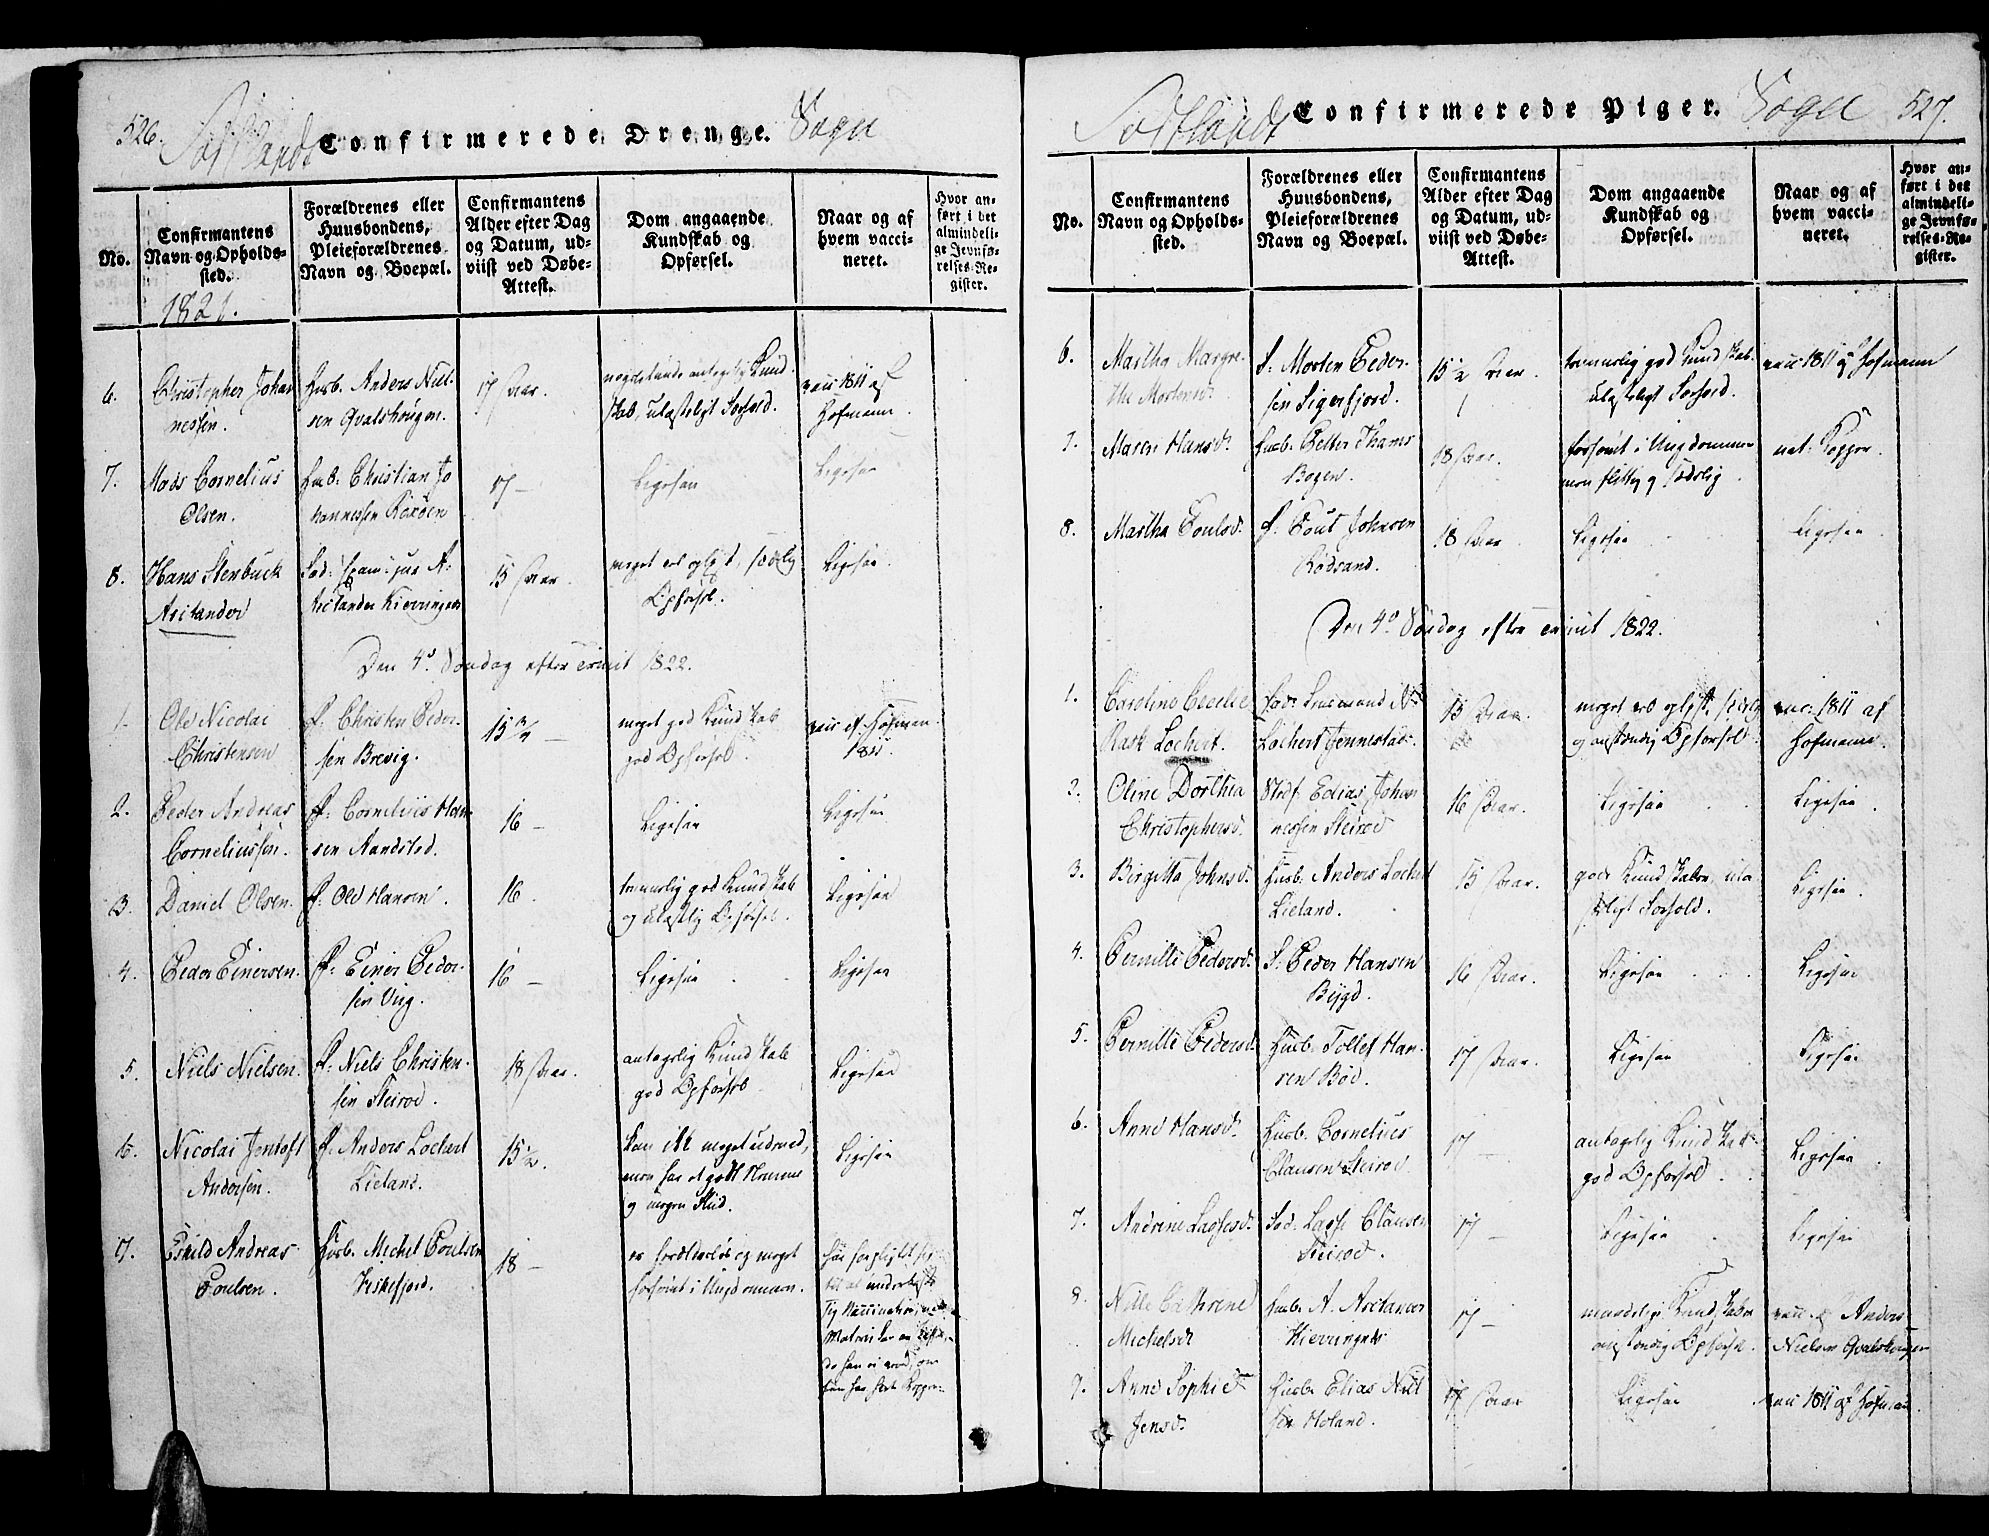 526.
Sortlandt Confirmerede Drenge. Sogn
No.
Confirmantens
Navn og Opholds-
sted.
Forældrenes eller
Huusbondens,
Pleieforældrenes
Navn og Boepæl.
Confirmantens
Alder efter Dag
og Datum, ud-
viist ved Døbe-
Attest.
Dom angaaende
Kundskab og
Opførsel.
Naar og af
hvem vacci-
neret.
Hvor an-
ført i det
almindeli-
ge Jevnfø-
relses-Re-
gister.
1821.
6.
Christopher Johan
nessen.
Huusb. Anders Niel-
sen Qvalshougen.
17 Aar.
nogenlunde antagelig Kund-
skab ulasteligt Forhold.
vacc 1811 af
Hofmann.
7.
Mads Cornelius
Olsen.
Huusb. Christian Jo
hannessen
17 —
Ligesaa
Ligesaa
8.
Hans Stenbuck
Arctander
A.
Arctander Kierringnes
15 Aar.
meget vel oplyst, sædelig
Opførsel.
Ligesaa.
Den 4de Søndag efter Trinit 1822.
1.
Ole Nicolai
Christensen
F. Christen Peder-
sen Brevig.
15 3/4 —
meget god Kundskab
god Opførsel.
vacc af Hofman
1811
2.
Peder Andreas
Corneliussen.
F. Cornelius Han
sen Aandsted.
16 —
Ligesaa
Ligesaa
3.
Daniel Olsen.
F. Ole Hansen.
16.
temmelig god Kundskab
og ulastlig Opførsel.
Ligesaa
4.
Peder Einersen.
F. Einer Peder-
sen Vig.
16 —
Ligesaa
Ligesaa
5.
Niels Nielsen.
F. Niels Christen-
sen Steiroe.
18 Aar.
antagelig Kundskab
god Opførsel
Ligesaa
6.
Nicolai Jentoft
Andersen.
F. Anders Lochert
Lieland.
15 1/2.
kan ikke meget udvend,
men har et godt Nemme
og megen Flid.
Ligesaa
7.
Eskild Andreas
Poulsen.
Huusb. Michel Poulsen
18 —
er forældreløs og meget
forsømt i Ungdommen.
527.
Sortlandt Confirmerede Piger. Sogn
No.
Confirmantens
Navn og Opholds-
sted.
Forældrenes eller
Huusbondens,
Pleieforældrenes
Navn og Boepæl.
Confirmantens
Alder efter Dag
og Datum, ud-
viist ved Døbe-
Attest.
Dom angaaende
Kundskab og
Opførsel.
Naar og af
hvem vacci-
neret.
Hvor an-
ført i det
almindeli-
ge Jevnfø-
relses-Re-
gister.
6.
Martha Margre-
the Mortensd.
F. Morten Peder-
sen Sigerfjord.
15 1/2 Aar.
temmelig god Kundskab
ulasteligt Forhold.
vacc 1811 af Hofmann
7.
Maren Hansd.
Huusb. Petter Thams
Bogen.
18 Aar.
forsømt i Ungdommen
men flittig og sædelig.
nat. Kopper.
8.
Martha Poulsd.
F. Poul Johnsen
Rødsand.
18 Aar
Ligesaa
Ligesaa
Den 4de Søndag efter Trinit 1822.
1.
Caroline Cecilie
Rask Lochert.
Lochert Jennestad.
15 Aar.
meget vel oplyst, sædelig
og anstændig Opførsel.
vacc. 1811 af
Hofmann.
2.
Oline Dorthea
Christophersd.
Stedf. Edias Johan
nessen Steiroe
16 Aar.
Ligesaa
Ligesaa
3.
Birgitta Johnsd.
Huusb. Anders Lochert
Lieland.
15 Aar.
gode Kundskaber, ula
steligt Forhold.
Ligesaa
4.
Pernille Pedersd.
F. Peder Hansen
Bygd.
16 Aar.
Ligesaa
Ligesaa
5.
Pernille Pedersd.
Huusb. Tollef Han-
sen Bøe.
17 Aar.
Ligesaa
Ligesaa
6.
Anne Hansd.
Huusb. Cornelius
Clausen Steiroe
17 —
antagelig Kundskab
god Opførsel.
Ligesaa
7.
Andrine Lassesd.
Fad. Lasse Clausen
Steiroe.
17 —
Ligesaa
Ligesaa
8.
Nille Cathrine
Michelsd
Huusb. A. Arctander
Kierringnes
17 —
maadelige Kundskaber
anstændig Opførsel.
vacc. af Anders
Nielsen Qvalshougen
9.
Anne Sophie
Jensd.
Huusb. Elias Niel
sen Holand.
17 Aar
Ligesaa
vacc 1811 af Hofman.